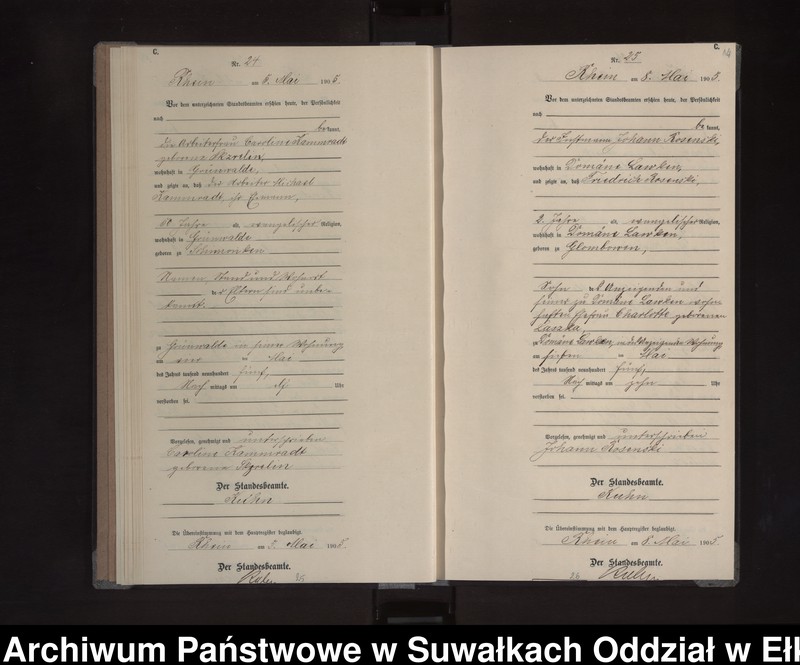 C.
Nr. 24
Rhein am 5. Mai 1905.
Vor dem unterzeichneten Standesbeamten erschien heute, der Persönlichkeit
nach
be kannt,
die Arbeiterfrau Caroline Kammradt
geborene
wohnhaft in Grünwalde,
und zeigte an, daß der Arbeiter Michael
Kammradt, ihr Ehemann,
Jahre alt, evangelischer Religion,
wohnhaft in Grünwalde
geboren zu
Namen, Stand und Wohnort
der Eltern sind unbe-
kannt.
zu Grünwalde in seiner Wohnung
am ten Mai
des Jahres tausend neunhundert fünf,
Nach mittags um Uhr
verstorben sei.
Vorgelesen, genehmigt und unterschrieben
Caroline Kammradt
geborene
Der Standesbeamte.
Kuhn
Die Übereinstimmung mit dem Hauptregister beglaubigt.
Rhein am Mai 1905.
Der Standesbeamte.
Kuhn
C.
Nr. 25
Rhein am 8. Mai 1905.
Vor dem unterzeichneten Standesbeamten erschien heute, der Persönlichkeit
nach
be kannt,
der Instmann Johann Rosenski,
wohnhaft in Domäne Lawken,
und zeigte an, daß Friedrich Rosenski,
2 Jahre alt, evangelischer Religion,
wohnhaft in Domäne Lawken,
geboren zu Glombowen,
Sohn des Anzeigenden und
seiner zu Domäne Lawken wohn-
haften Ehefrau Charlotte geborenen
zu Domäne Lawken, in des Anzeigenden Wohnung
am sieben ten Mai
des Jahres tausend neunhundert fünf,
Nach mittags um zehn Uhr
verstorben sei.
Vorgelesen, genehmigt und unterschrieben
Johann Rosenski
Der Standesbeamte.
Kuhn
Die Übereinstimmung mit dem Hauptregister beglaubigt.
Rhein am 8. Mai 1905
Der Standesbeamte.
Kuhn
Archiwum Państwowe w Suwałkach Oddział w Ełk